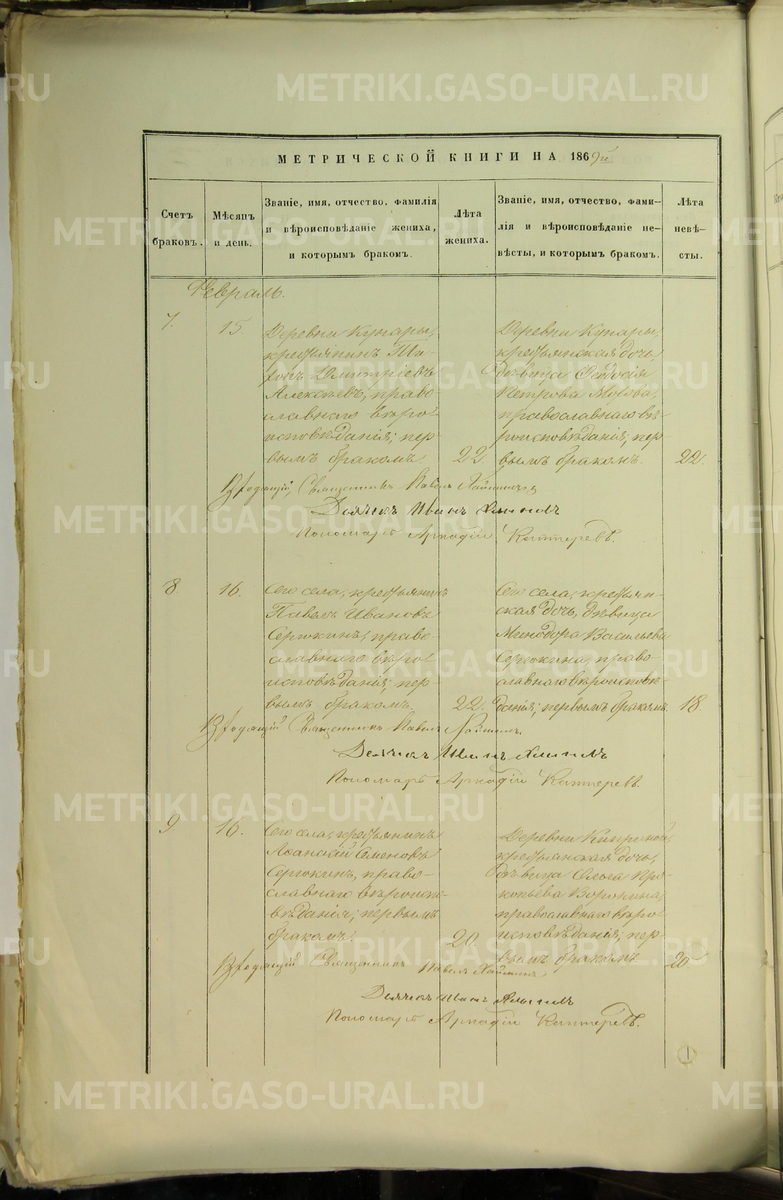 METRIKI.GASO-URAL.RU
МЕТРИЧЕСКОЙ КНИГИ НА 1869й
Счетъ браковъ.
Мѣсяцъ и день.
Званіе, имя, отчество, фамилія
и вѣроисповѣданіе жениха,
и которымъ бракомъ.
Лѣта жениха.
Званіе, имя, отчество, фами-
лія и вѣроисповѣданіе не-
вѣсты, и которымъ бракомъ.
Лѣта невѣ-
сты.
Февраль.
7.
15.
Деревни Кунары,
крестьянинъ
Димитріевъ
Алексѣевъ, право-
славнаго вѣро-
исповѣданія; пер-
вымъ бракомъ
22.
Деревни Кунары,
крестьянская дочь
дѣвица Ѳеодосія
Петрова
православнаго вѣ-
роисповѣданія, пер-
вымъ бракомъ.
22.
Священникъ Павелъ
Дьячекъ Иванъ
Пономарь Аркадій
8.
16.
Сего села, крестьянинъ
Павелъ Ивановъ
Серюкинъ, право-
славнаго вѣро-
исповѣданія; пер-
вымъ бракомъ.
22.
Сего села, крестьян-
ская дочь, дѣвица
Минодора Васильева
Серюкина, право-
славнаго вѣроисповѣ-
данія; первымъ бракомъ.
18
Священникъ Павелъ
Дьячекъ Иванъ
Пономарь Аркадій
9
16.
Сего села, крестьянинъ
Семеновъ
Серюкинъ, право-
славнаго вѣроиспо-
вѣданія; первымъ
бракомъ.
20.
Деревни
крестьянская дочь,
дѣвица Ольга Про-
копьева Воронина,
православнаго вѣро-
исповѣданія, пер-
вымъ бракомъ
20
Священникъ Павелъ
Дьячекъ Иванъ
Пономарь Аркадій